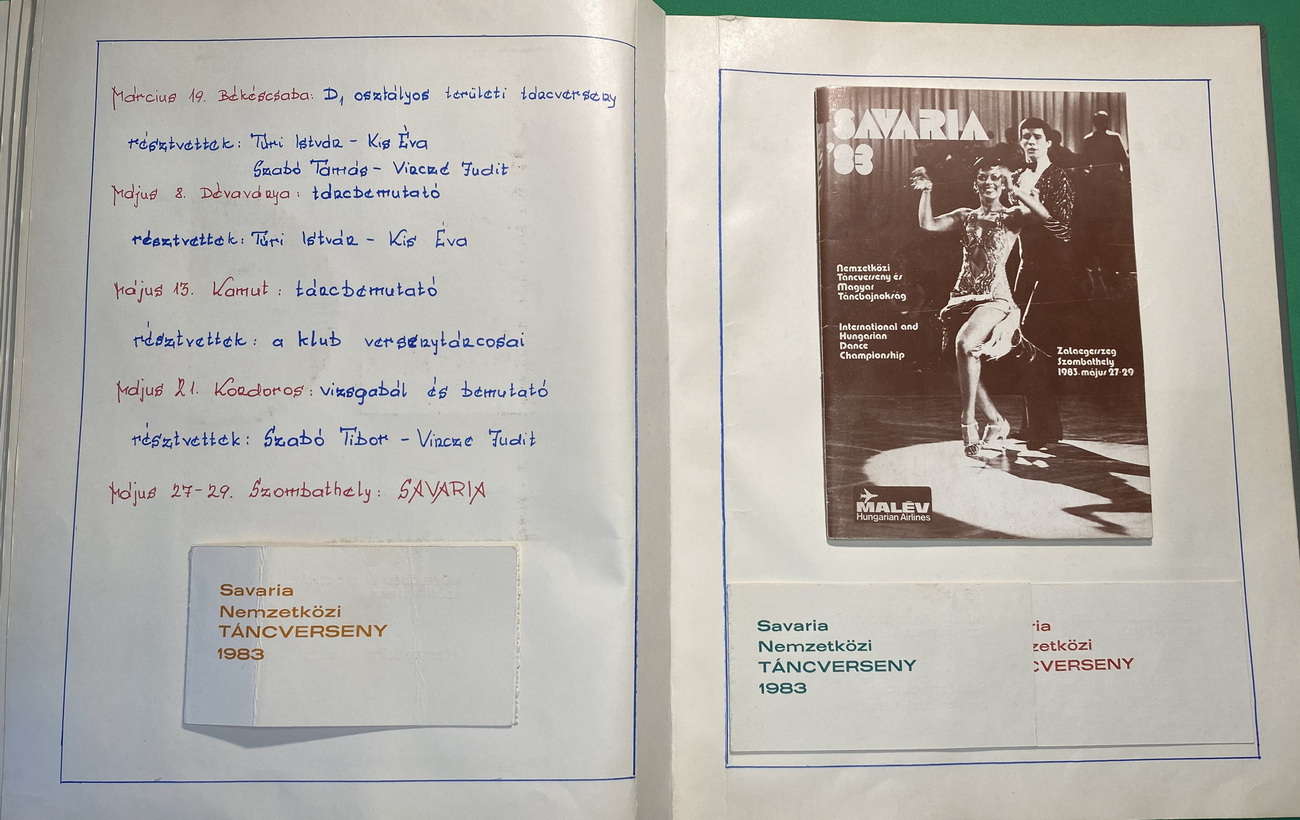 Március 19. Békéscsaba: D, osztályos területi táncverseny
résztvettek: Túri István - Kis Éva
Szabó Tamás - Vincze Judit
Május 8. Dévaványa: táncbemutató
résztvettek: Túri István - Kis Éva
Május 13. Kamut: táncbemutató
résztvettek: a klub versenytáncosai
Május 21. Kondoros: vizsgabál és bemutató
résztvettek: Szabó Tibor - Vincze Judit
Május 27-29. Szombathely: SAVARIA
Savaria
Nemzetközi
TÁNCVERSENY
1983
SAVARIA
'83
Nemzetközi
Táncverseny és
Magyar
Táncbajnokság
International and
Hungarian
Dance
Championship
Zalaegerszeg
Szombathely
1983. május 27-29
MALÉV
Hungarian Airlines
Savaria
Nemzetközi
TÁNCVERSENY
1983
ria
zetközi
CVERSENY